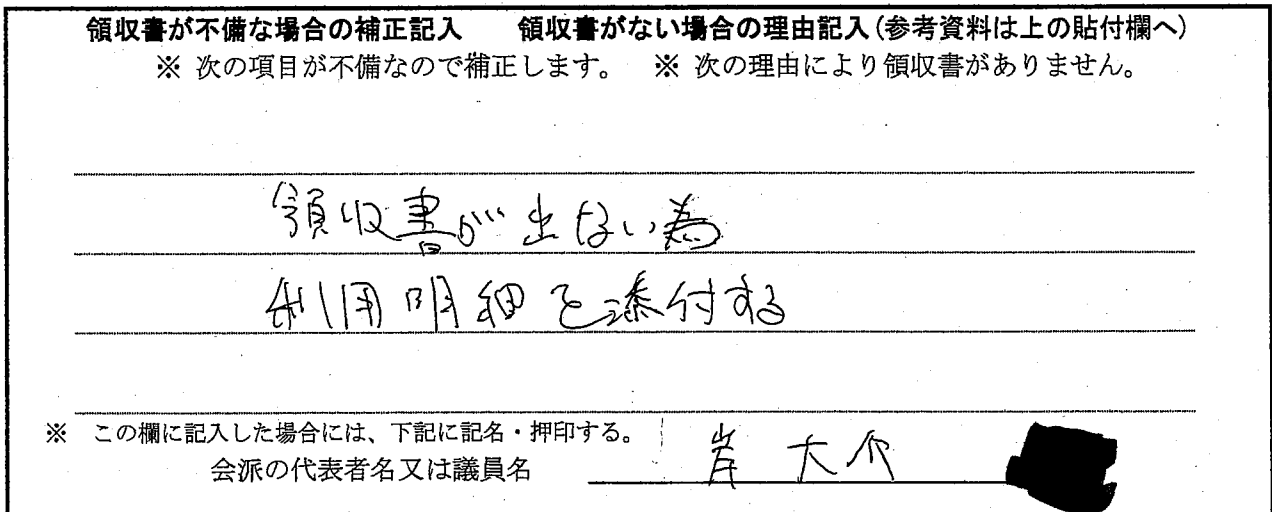 領収書が不備な場合の補正記入 領収書がない場合の理由記入(参考資料は上の貼付欄へ)
※ 次の項目が不備なので補正します。 ※ 次の理由により領収書がありません。
領収書が出ない為
利用明細を添付する
※ この欄に記入した場合には、下記に記名・押印する。
会派の代表者名又は議員名 岸 大介